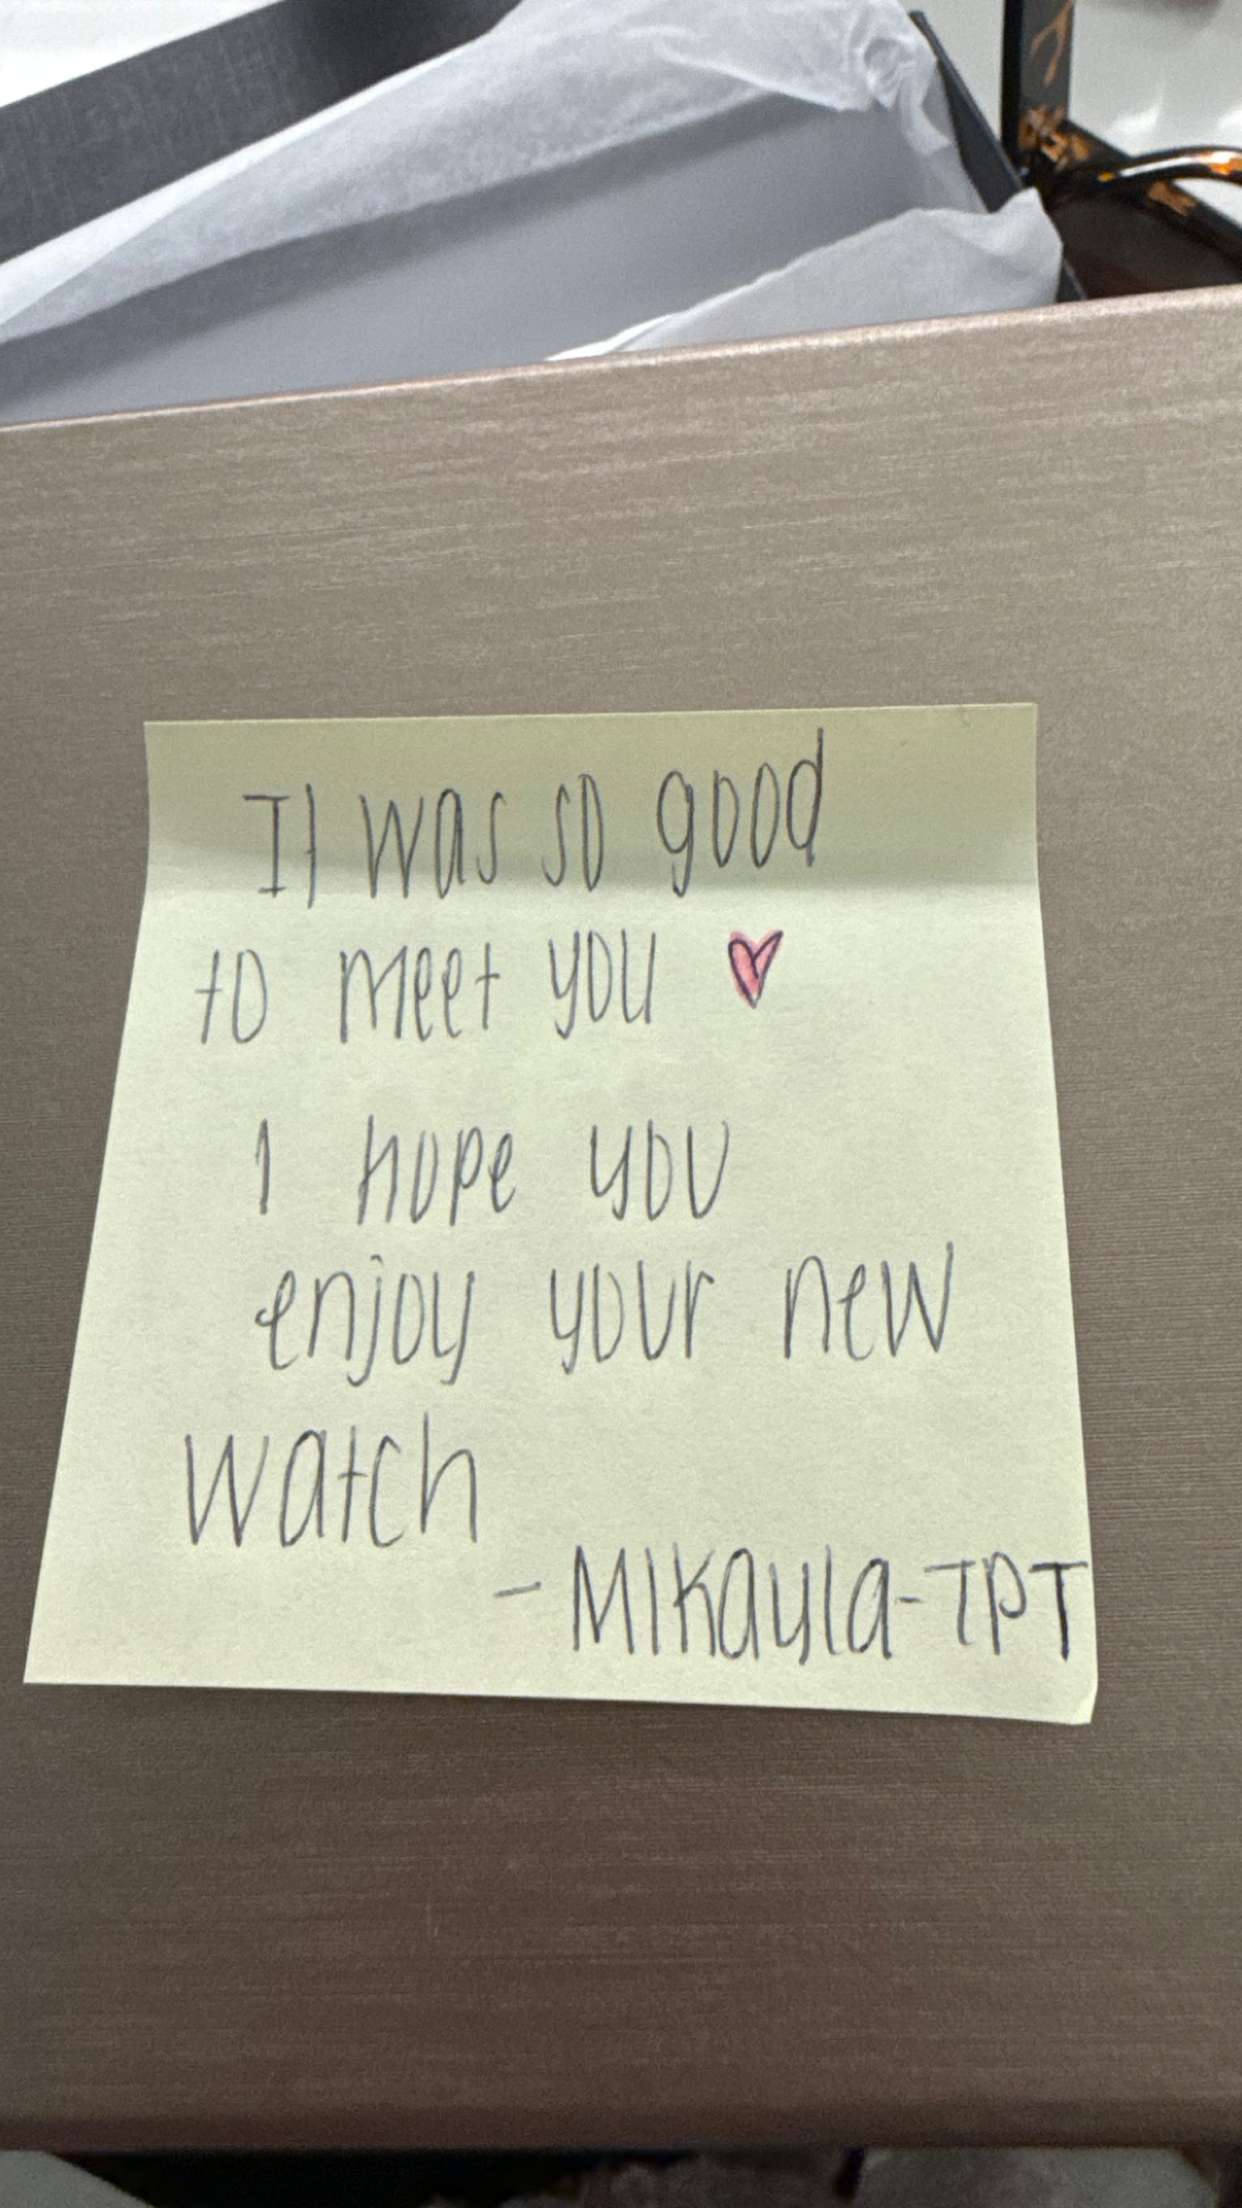 It was so good
to meet you ♥
I hope you
enjoy your new
watch
- Mikayla-TPT